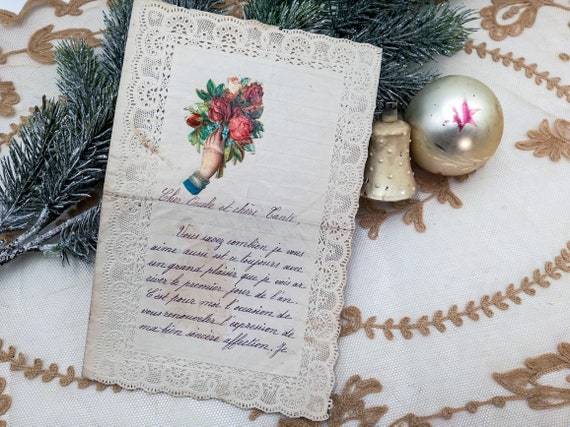 Cher Oncle et chère Tante,
Vous savez combien je vous
aime aussi est-u toujours avec
un grand plaisir que je vois ar
river le premier jour de l'an.
C'est pour moi l'occasion de
vous renouveler l'expression de
ma bien sincère affection. Je